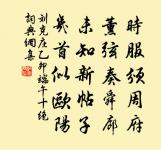 時服頒周府
薰弦奏舜廊
未知新帖子
幾首似歐陽
劉克庄乙卯端午十绝
詞典網集